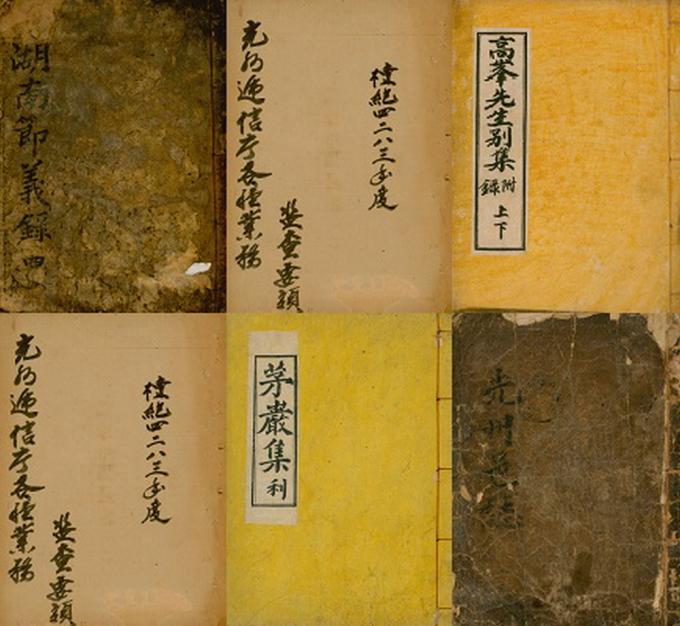 湖南節義錄 四
光州逓信庁各種業務
監査要領
檀紀四二八三年度
高峯先生別集
附錄
上下
光州逓信庁各種業務
監査要領
檀紀四二八三年度
茅巖集 利
光州邑誌